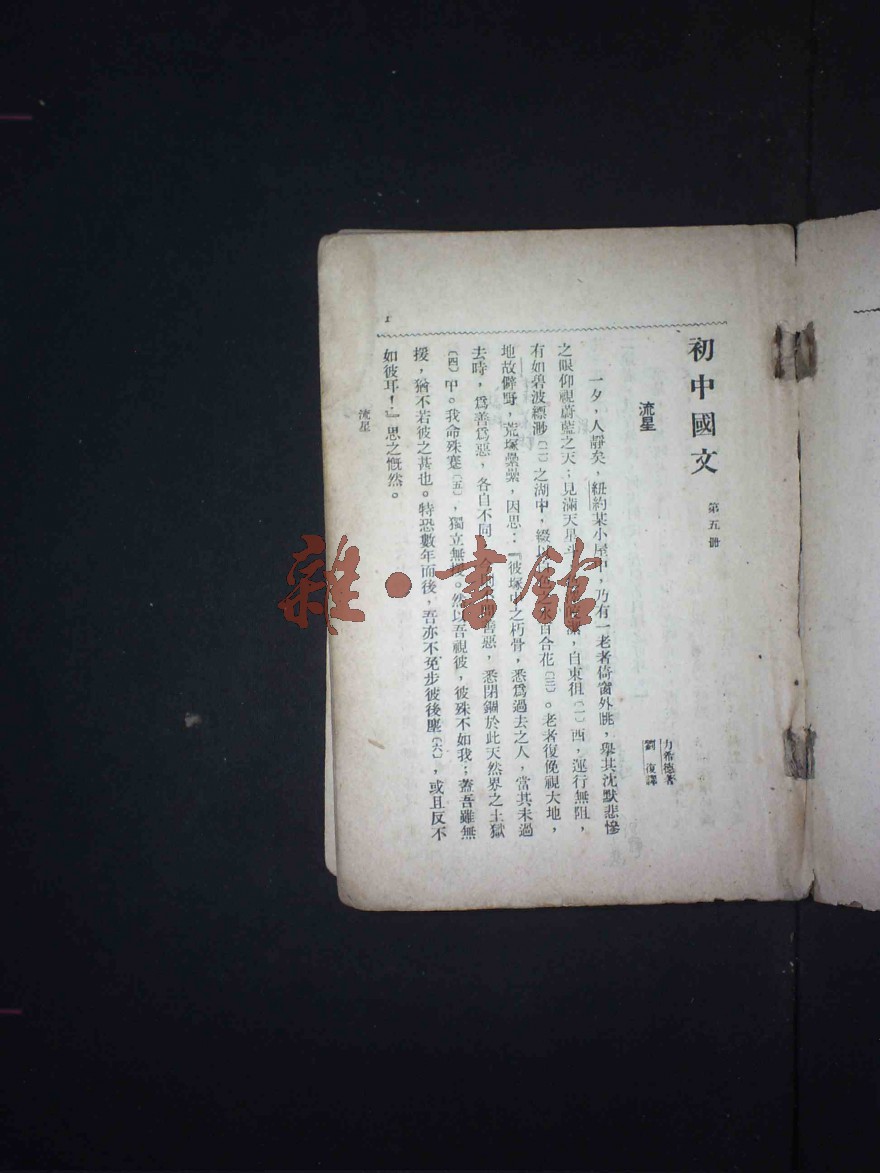 初中國文 第五冊
流星
力希德著
劉復譯
一夕，人靜矣，紐約某小屋中，乃有一老者倚窗外眺，舉其沈默悲慘
之眼仰視蔚藍之天；見滿天星斗，自東徂〔一〕西，運行無阻，
有如碧波縹渺〔二〕之湖中，綴以百合花〔三〕。老者復俛視大地，
地故僻野，荒塚纍纍，因思：『彼塚中之朽骨，悉爲過去之人，當其未過
去時，爲善爲惡，各自不同，善惡，悉閉錮於此天然界之土獄
〔四〕中。我命殊蹇〔五〕，獨立無援。然以吾視彼，彼殊不如我；蓋吾雖無
援，猶不若彼之甚也。特恐數年而後，吾亦不免步彼後塵〔六〕，或且反不
如彼耳！』思之慨然。
流星
1
雜·書館